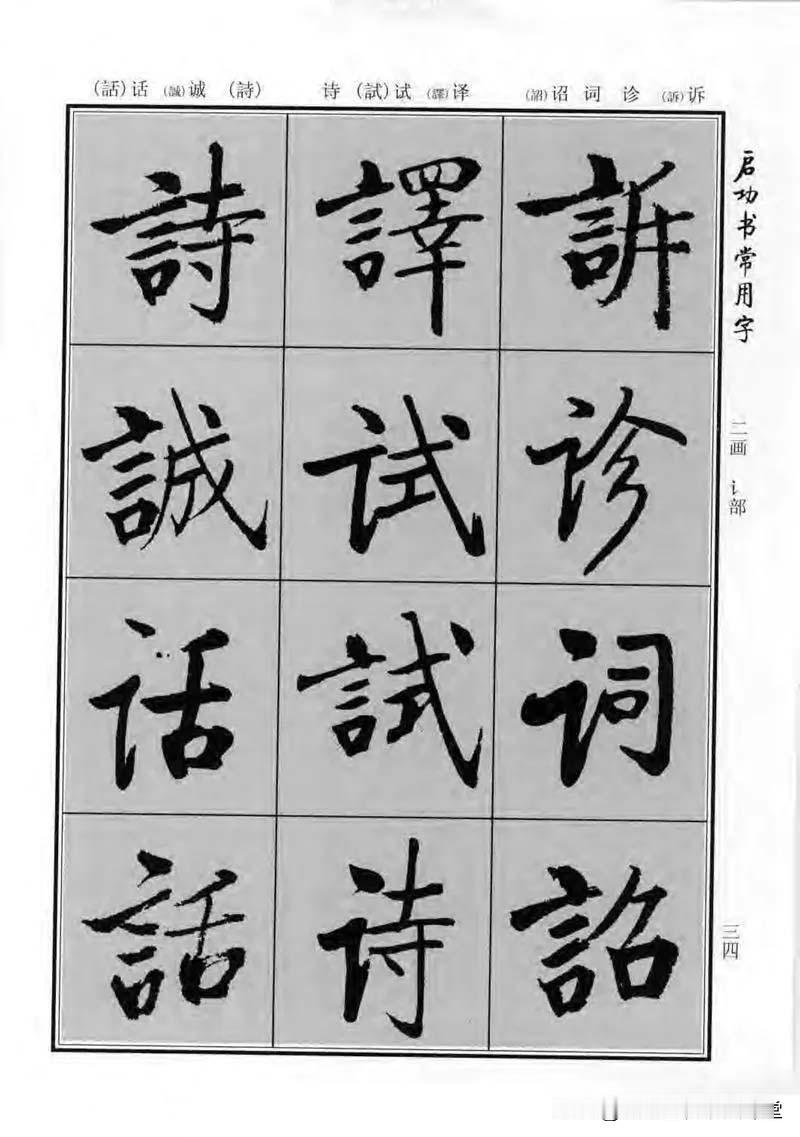 (話)话 (誠)诚 (詩) 诗 (試)试 (譯)译 (詔)诏 词 诊 (訴)诉
启功书常用字
二画 讠部
三四
訴
诊
词
詔
譯
试
試
诗
詩
誠
话
話